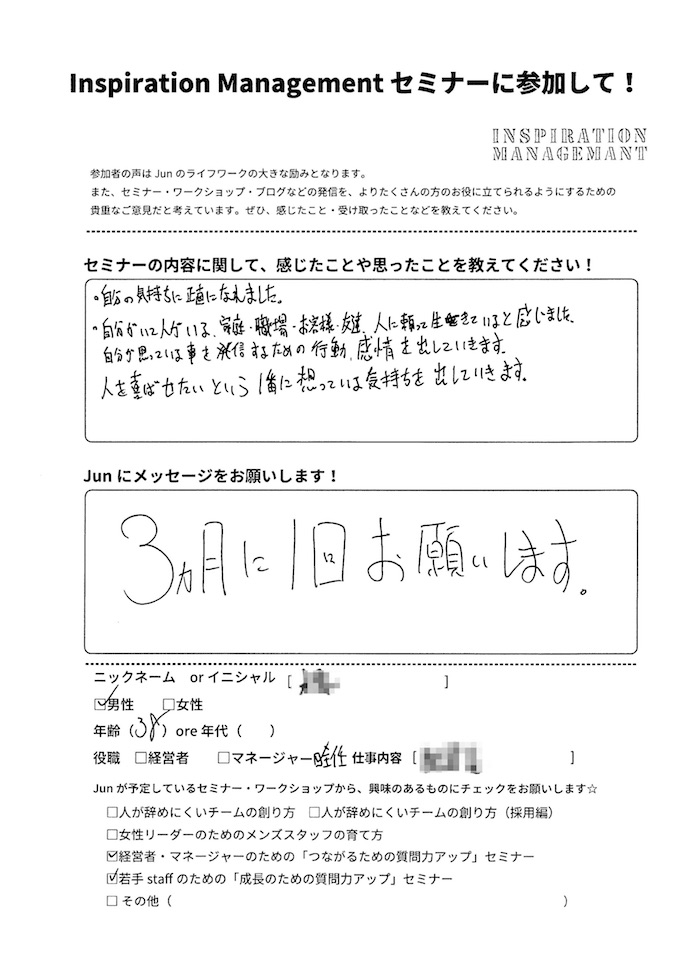 Inspiration Management セミナーに参加して！
INSPIRATION
MANAGEMANT
参加者の声は Jun のライフワークの大きな励みとなります。
また、セミナー・ワークショップ・ブログなどの発信を、よりたくさんの方のお役に立てられるようにするための
貴重なご意見だと考えています。ぜひ、感じたこと・受け取ったことなどを教えてください。
セミナーの内容に関して、感じたことや思ったことを教えてください！
・自分の気持ちに正直になれました。
・自分がいて人がいる、家庭・職場・お客様・友達、人に頼って生きていると感じました
自分が思っている事を発信するための行動、感情を出していきます。
人を喜ばせたいという1番に想っている気持ちを出していきます。
Jun にメッセージをお願いします！
3ヵ月に1回お願いします。
ニックネーム or イニシャル [ ]
☑男性 □女性
年齢（38）ore 年代（ ）
役職 □経営者 □マネージャー 仕事内容 [ ]
Jun が予定しているセミナー・ワークショップから、興味のあるものにチェックをお願いします☆
□人が辞めにくいチームの創り方 □人が辞めにくいチームの創り方（採用編）
□女性リーダーのためのメンズスタッフの育て方
☑経営者・マネージャーのための「つながるための質問力アップ」セミナー
☑若手 staff のための「成長のための質問力アップ」セミナー
□ その他（ ）